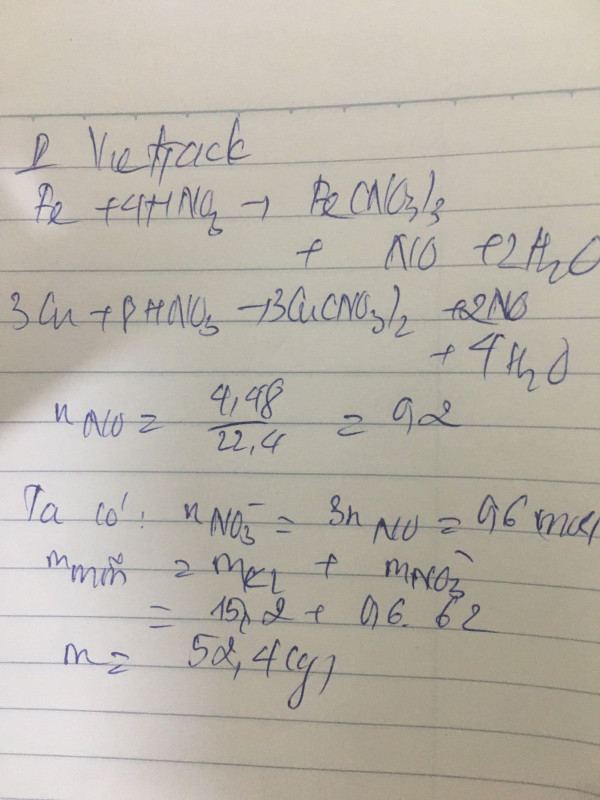 Fe + 4HNO3 → Fe(NO3)3
+ NO + 2H2O
3Cu + 8HNO3 → 3Cu(NO3)2 + 2NO
+ 4H2O
nNO = 4,48/22,4 = 0,2
Ta có: nNO3- = 3nNO = 0,6 mol
mmuối = mKL + mNO3-
= 15,2 + 0,6.62
m = 52,4(g)